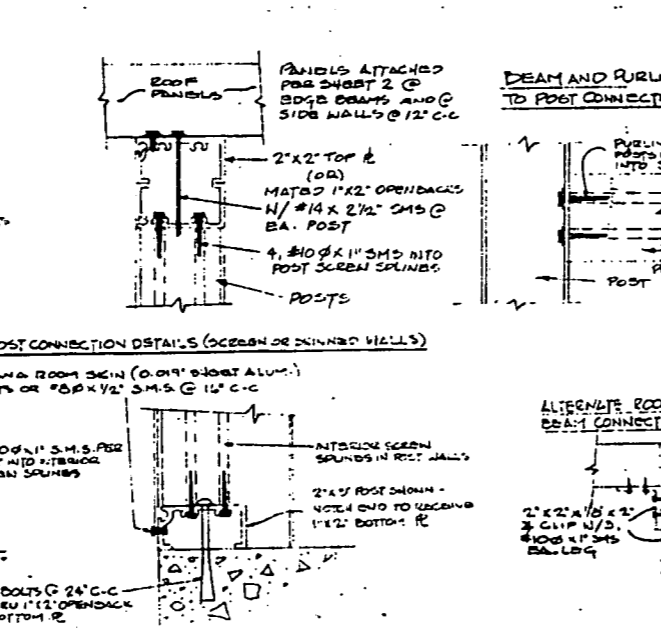 ROOF
PANELS
PANELS ATTACHED
PER SHEET 2 @
EDGE BEAMS AND @
SIDE WALLS @ 12" C-C
2"X2" TOP PL
(OR)
MATED 1"X2" OPENBACKS
W/ #14 X 2 1/2" SMS @
EA. POST
4, #10 Ø X 1" SMS INTO
POST SCREEN SPLINES
POSTS
BEAM AND PURLI
TO POST CONNECT
PURLIN
POSTS
INTO S
POST
OST CONNECTION DETAILS (SCREEN OR SKINNED WALLS)
ROOM SKIN (0.019" SHEET ALUM.)
TS OR #8Ø X 1/2" S.M.S. @ 16" C-C
0Ø X 1" S.M.S. PER
INTO INTERIOR
EN SPLINES
INTERIOR SCREEN
SPLINES IN POST WALLS
POST SHOWN -
NOTCH END TO RECEIVE
1"X2" BOTTOM PL
BOLTS @ 24" C-C
RU 1"X2" OPENBACK
OTTOM PL
ALTERNATE ROO
BEAM CONNECT
2"X2"X1/8"X2"
CLIP W/3,
#10Ø X 1" SMS
EA. LEG